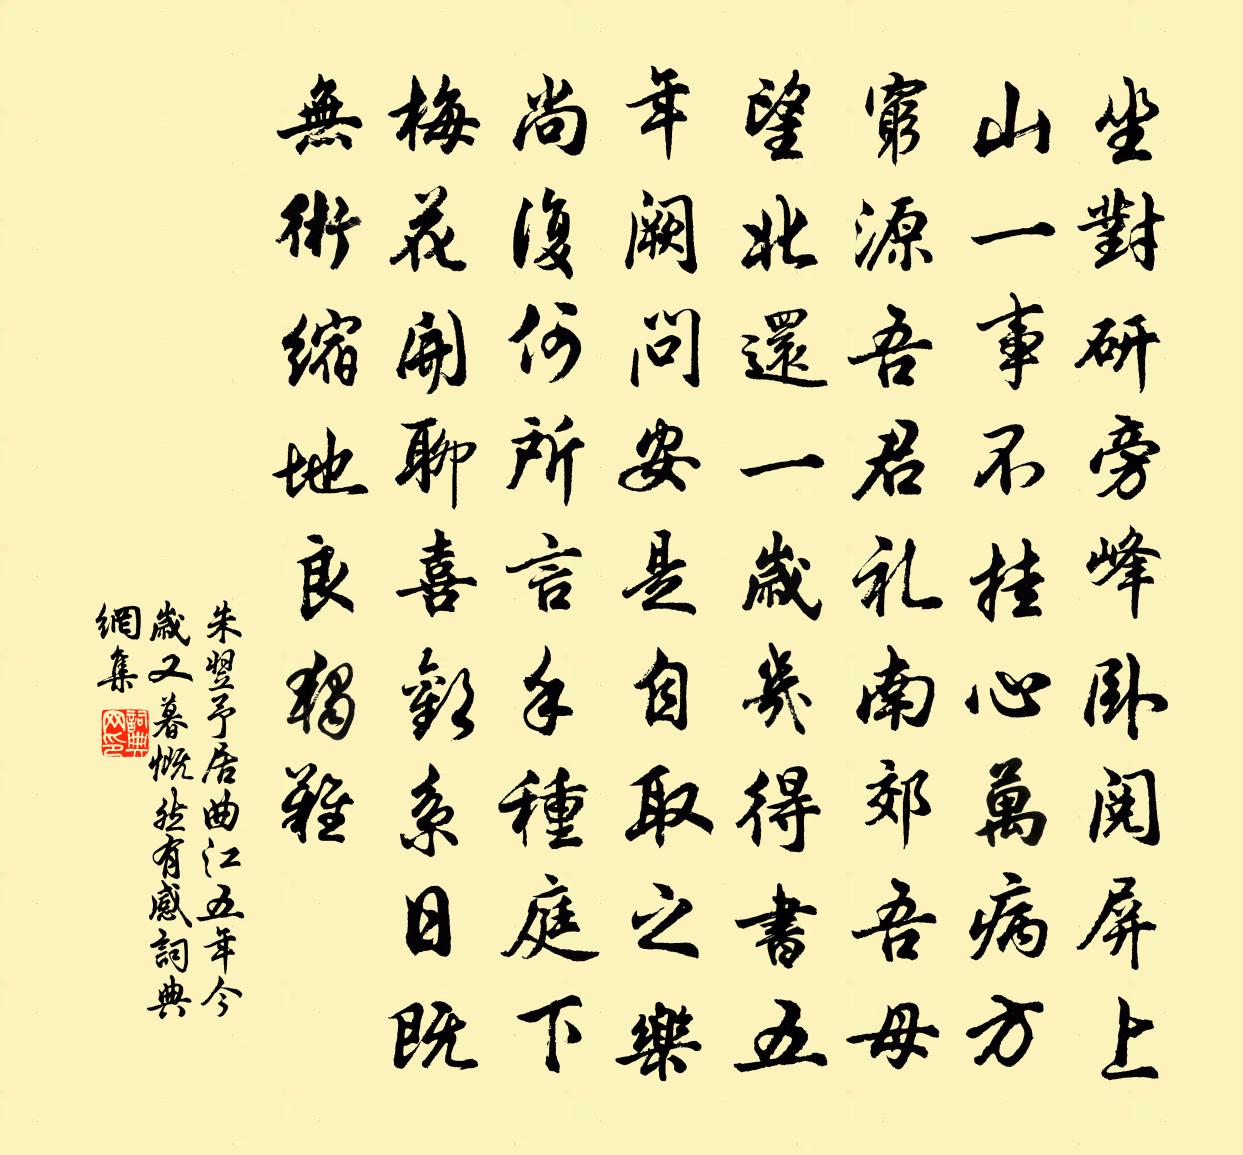 坐對研旁峰卧閱屏上
山一事不挂心萬病方
窮源吾君礼南郊吾母
望北還一歲幾得書五
年闕問安是自取之樂
尚復何所言手種庭下
梅花開聊喜歡系日既
無術縮地良獨難
朱翌予居曲江五年今
歲又暮慨然有感詞典
網集
詞典
网印